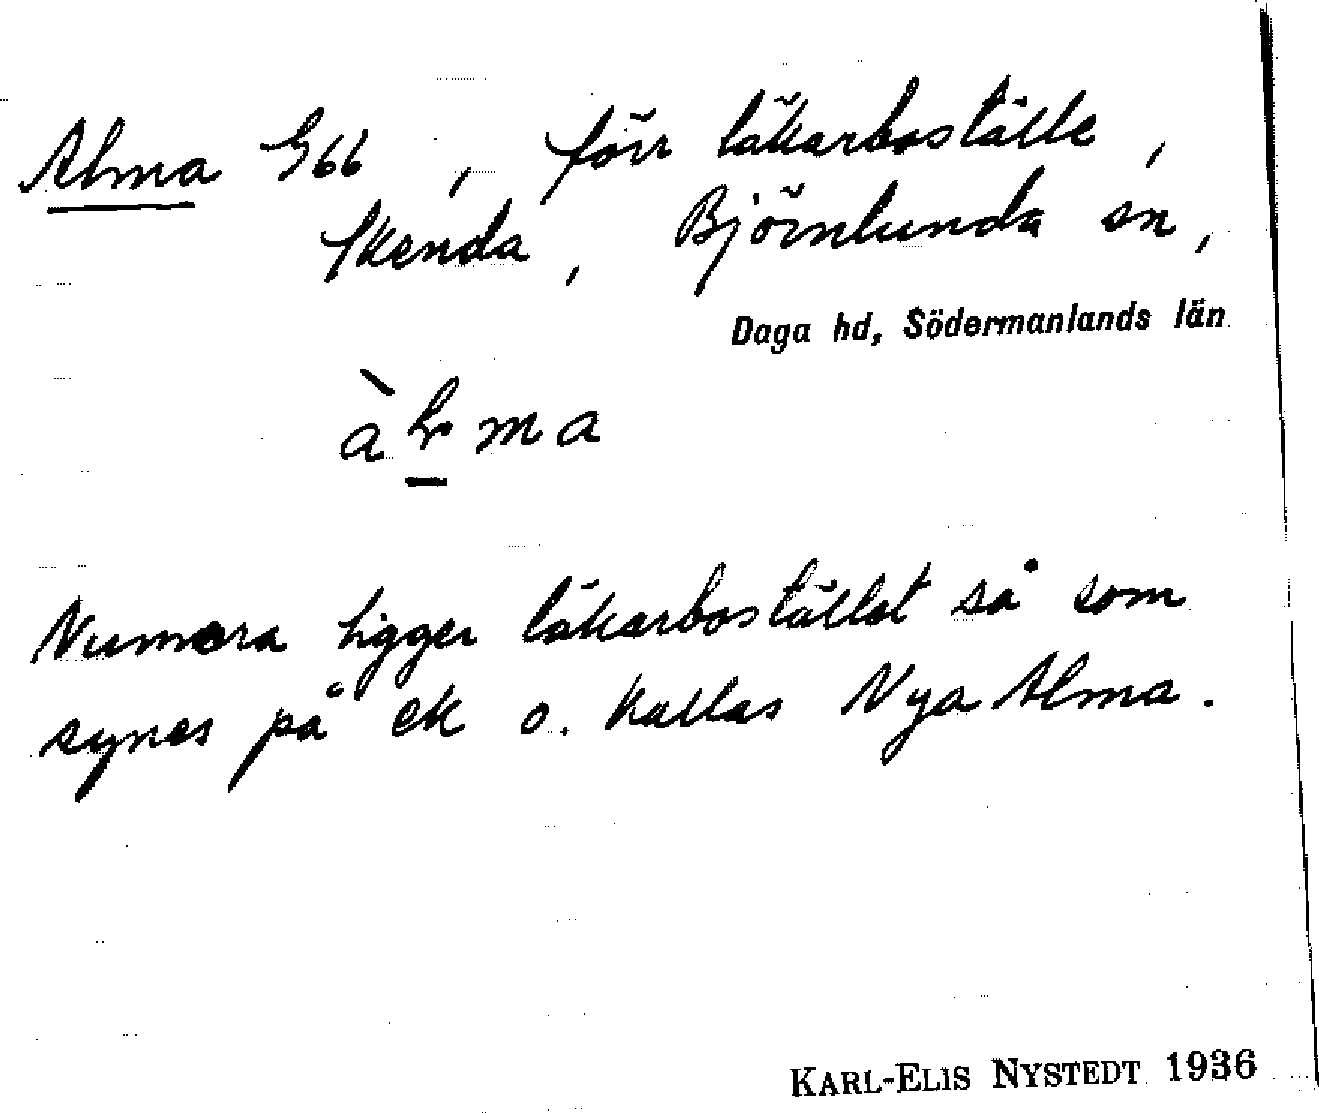 Alma G66, förr läkarboställe,
Skenda, Björnlunda sn,
Daga hd, Södermanlands län
àlma
Numera ligger läkarbostället så som
synes på ek o. kallas Nya Alma.
KARL-ELIS NYSTEDT 1936